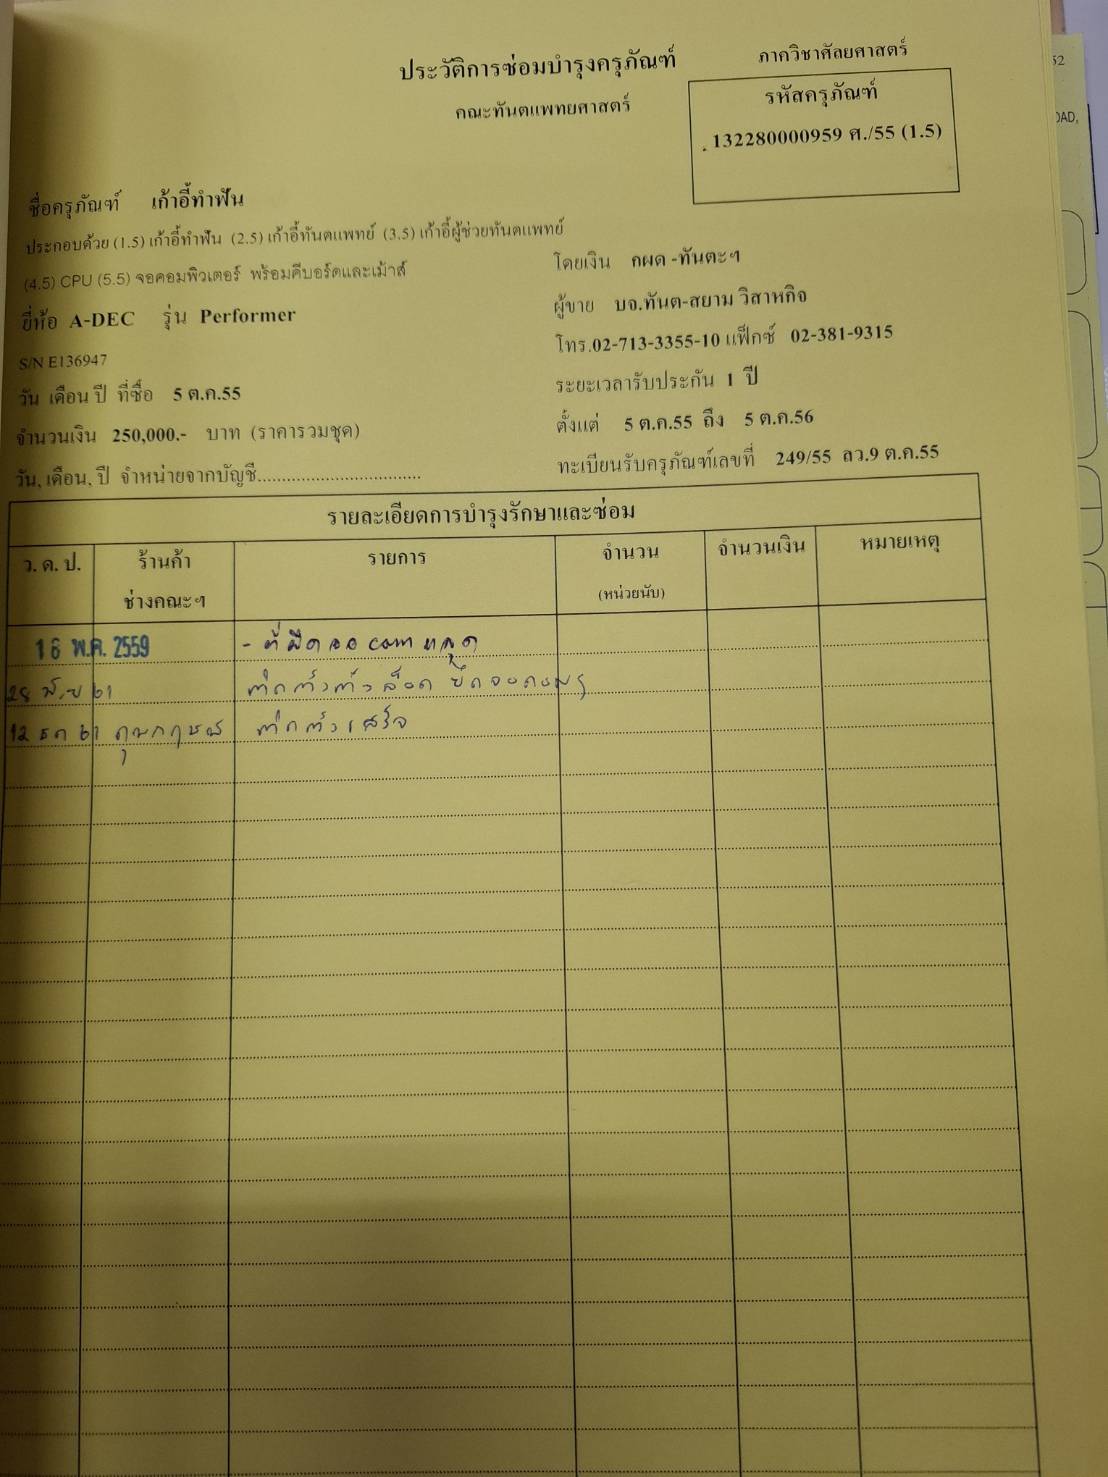 ประวัติการซ่อมบำรุงครุภัณฑ์
ภาควิชาศัลยศาสตร์
คณะทันตแพทยศาสตร์
รหัสครุภัณฑ์
132280000959 ศ./55 (1.5)
52
OAD,
ชื่อครุภัณฑ์ เก้าอี้ทำฟัน
ประกอบด้วย (1.5) เก้าอี้ทำฟัน (2.5) เก้าอี้ทันตแพทย์ (3.5) เก้าอี้ผู้ช่วยทันตแพทย์
(4.5) CPU (5.5) จอคอมพิวเตอร์ พร้อมคีบอร์ดและเม้าส์
โดยเงิน กผด -ทันตะฯ
ยี่ห้อ A-DEC รุ่น Performer
ผู้ขาย บจ.ทันต-สยาม วิสาหกิจ
S/N E136947
โทร.02-713-3355-10 แฟ็กซ์ 02-381-9315
วัน เดือน ปี ที่ซื้อ 5 ต.ค.55
ระยะเวลารับประกัน 1 ปี
จำนวนเงิน 250,000.- บาท (ราคารวมชุด)
ตั้งแต่ 5 ต.ค.55 ถึง 5 ต.ค.56
วัน, เดือน, ปี จำหน่ายจากบัญชี..................................
ทะเบียนรับครุภัณฑ์เลขที่ 249/55 ลว.9 ต.ค.55
รายละเอียดการบำรุงรักษาและซ่อม
ว. ด. ป. ร้านค้า รายการ จำนวน จำนวนเงิน หมายเหตุ
ช่างคณะฯ (หน่วยนับ)
16 พ.ค. 2559 - ที่ยึดจอ com หลุด
28 61 ติดตั้งตัวล็อค ยึดจอคอมฯ
12 ธค 61 ติดตั้งเสร็จ